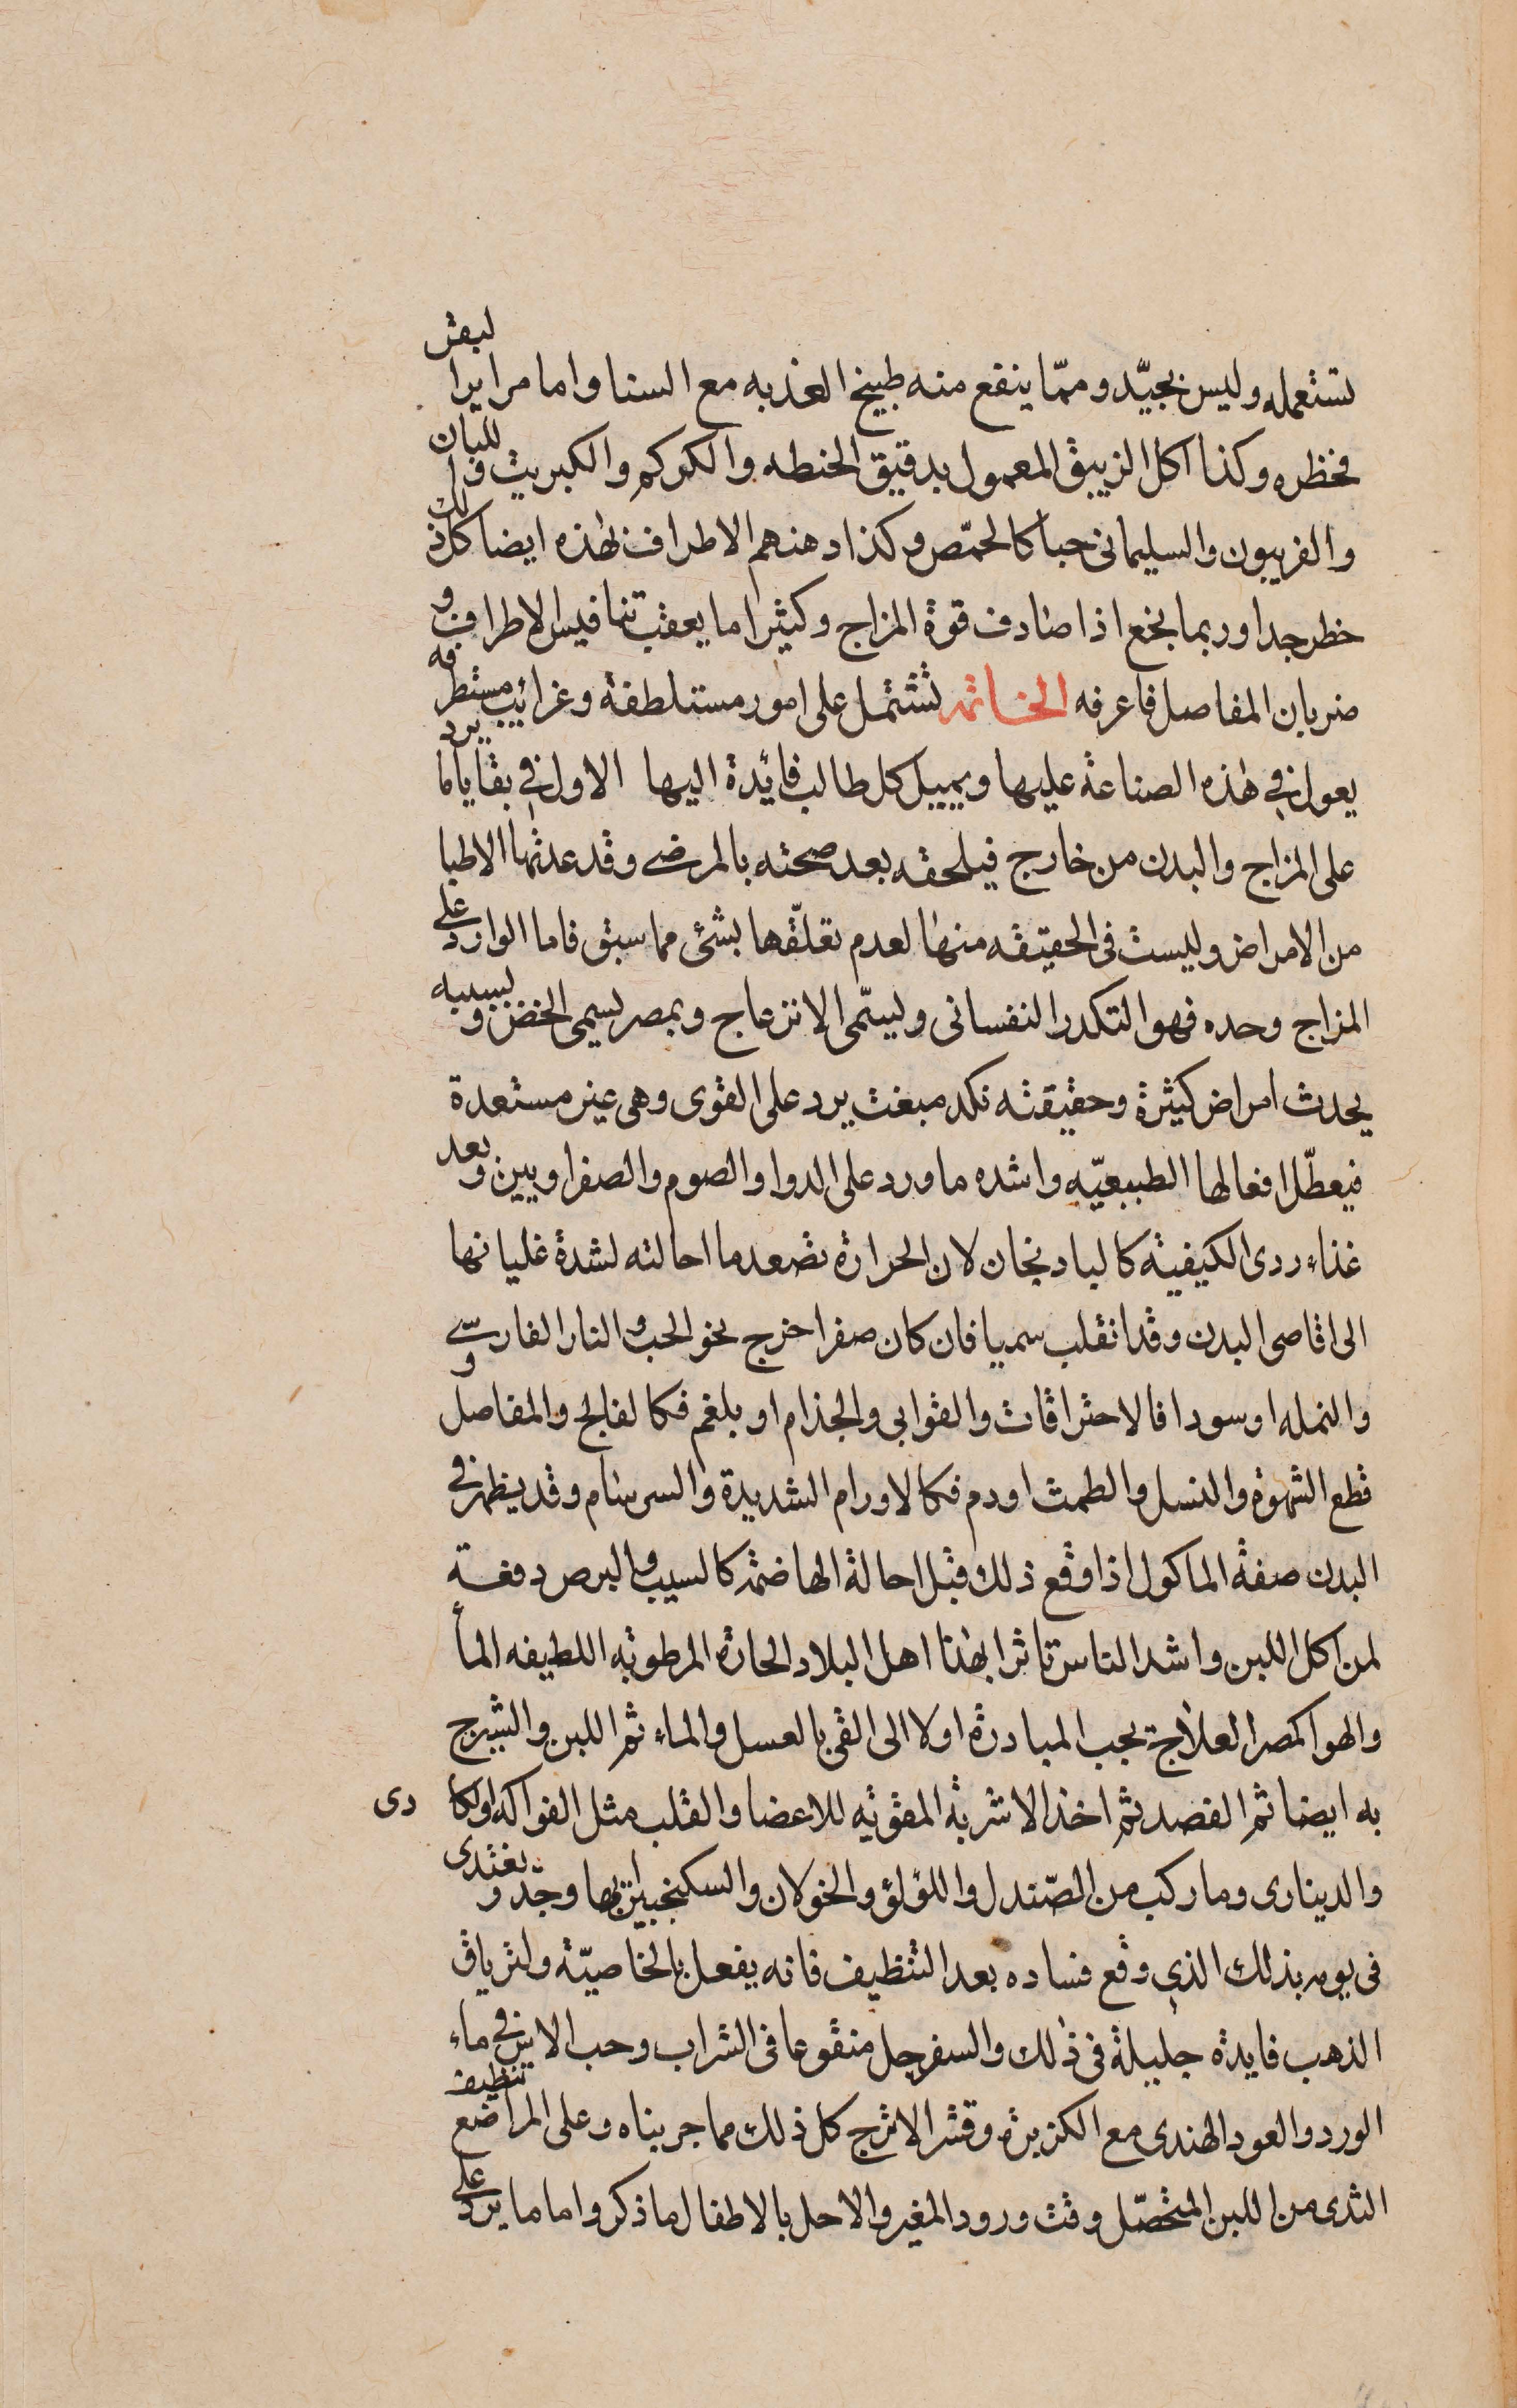 تستعمله وليس بجيّد ومما ينفع منه طبيخ العذبه مع السنا واما مراير البقر
فخطره وكذا اكل الزيبق المعمول بدقيق الحنطه والكركم والكبريت واللبان
والفربيون والسليمانى حبا كالحمّص وكذا دهنهم الاطراف بهذه ايضا كل ذلك
خطر جدا وربما نجع اذا صادف قوة المزاج وكثيرا ما يعقب تنافيس الاطراف و
ضربان المفاصل فاعرفه الخاتمه تشتمل على امور مستلطفة وغرائب مستطرفه
يعول فى هذه الصناعة عليها ويميل كل طالب فائدة اليها الاول فى بقايا ما يرد
على المزاج والبدن من خارج فيلحقه بعد صحته بالمرضى وقد عدتها الاطبا
من الامراض وليست فى الحقيقه منها لعدم تعلّقها بشئ مما سبق فاما الوارد على
المزاج وحده فهو التكدر النفسانى ويسمّى الانزعاج وبمصر يسمى الخض وبسببه
يحدث امراض كثيرة وحقيقته نكد مبغت يرد على القوى وهى غير مستعدة
فيعطّل افعالها الطبيعيّه واشده ما ورد على الدوا والصوم والصفراويين وبعد
غذاء ردى الكيفية كالبادنجان لان الحرارة تصعد ما احالته لشدة غليانها
الى اقاصى البدن وقد انقلب سميا فان كان صفرا خرج نحو الحب والنار الفارسّى
والنمله او سودا فالاحتراقات والقوابى والجذام او بلغم فكالفالج والمفاصل و
قطع الشهوة والنسل والطمث او دم فكالاورام الشديدة والسرسام وقد يظهر فى
البدن صفة الماكول اذا وقع ذلك قبل احالة الهاضمة كالسيب والبرص دفعة
لمن اكل اللبن واشد الناس تاثرا بهذا اهل البلاد الحارة المرطوبه اللطيفه الماأ
والهوا كمصر العلاج يجب المبادرة اولا الى القى بالعسل والماء ثم اللبن والشيرج
به ايضا ثم الفصد ثم اخذ الاشربة المقوية للاعضا والقلب مثل الفواكه والكادى
والدينارى وما ركب من الصّندل واللؤلؤ والخولان والسكنجبين بها وجدّ ويغتدى
فى يومه بذلك الذى وقع فساده بعد التنظيف فانه يفعل بالخاصيّة ولترياق
الذهب فايدة جليلة فى ذلك والسفرجل منقوعا فى الشراب وحب الاس فى ماء
الورد والعود الهندى مع الكزبرة وقشر الاترج كل ذلك مما جربناه وعلى المراضع تنظيف
الثدى من اللبن المتحصّل وقت ورود المغير والا حل بالاطفال ما ذكر واما ما يرد على